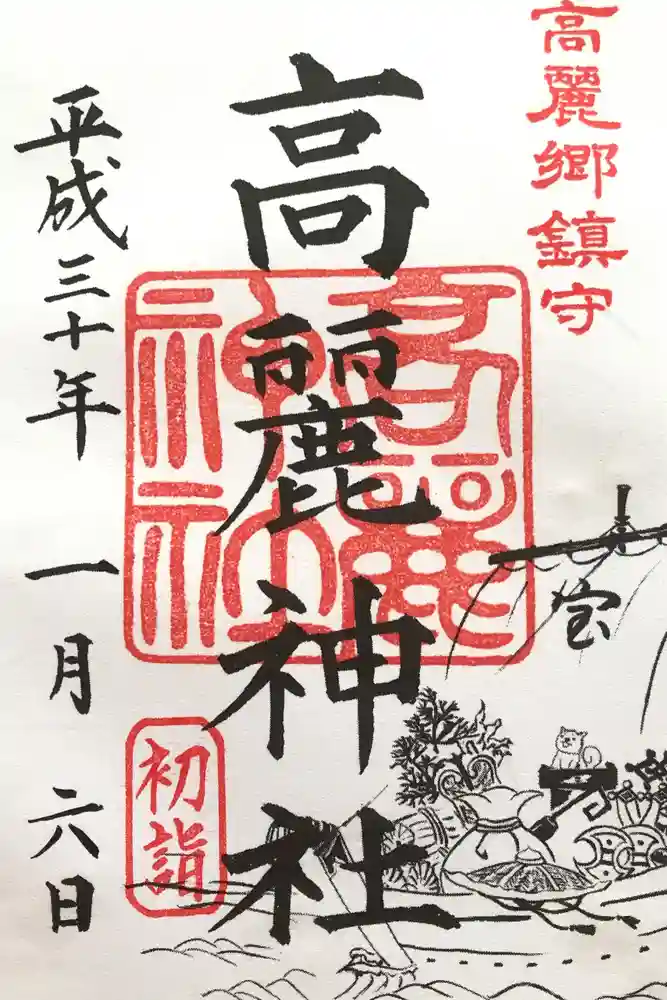 高麗郷鎮守
高麗神社
平成三十年一月六日
初詣
宝
高麗
神社